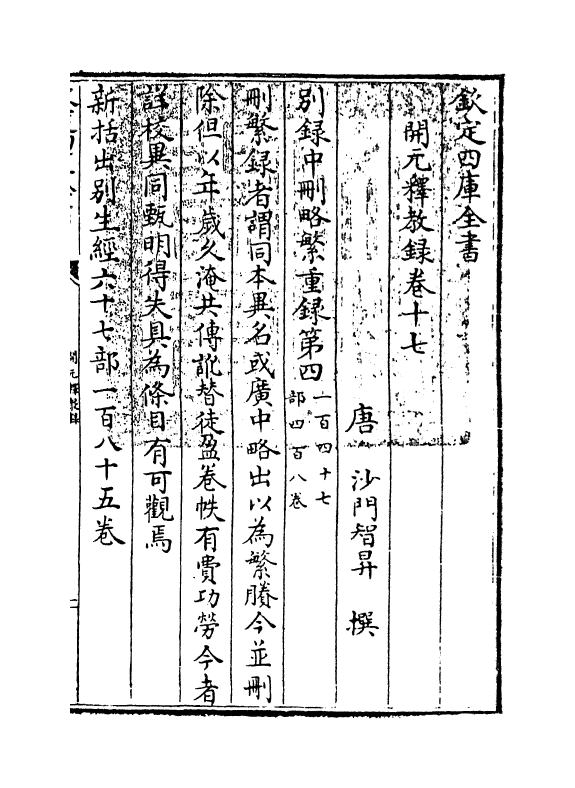 欽定四庫全書
開元釋教錄卷十七
唐 沙門智昇 撰
別録中刪略繁重録第四一百四十七部四百八卷
刪繁録者謂同本異名或廣中略出以為繁賸今並刪
除但以年歲久淹共傳訛替徒盈卷帙有費功勞今者
詳校異同甄明得失具為條目有可觀焉
新括出別生經六十七部一百八十五卷
開元釋教録